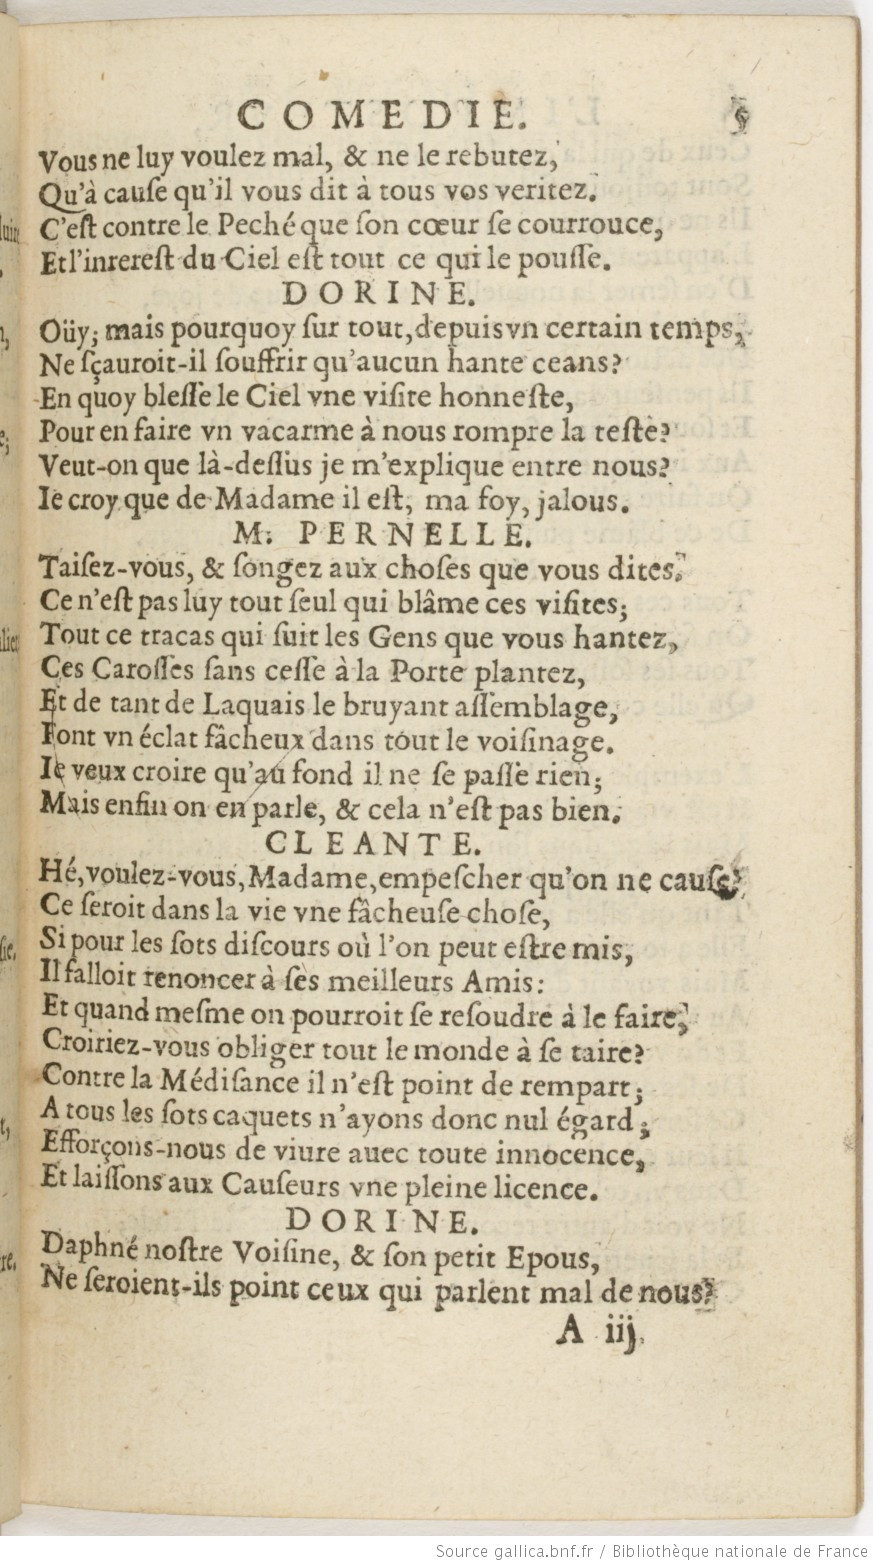 COMEDIE. 5
Vous ne luy voulez mal, & ne le rebutez,
Qu'à cauſe qu'il vous dit à tous vos veritez.
C'eſt contre le Peché que ſon cœur ſe courrouce,
Et l'inrereſt du Ciel eſt tout ce qui le pouſſe.
DORINE.
Oüy; mais pourquoy ſur tout, depuis vn certain temps,
Ne ſçauroit-il ſouffrir qu'aucun hante ceans?
En quoy bleſſe le Ciel vne viſite honneſte,
Pour en faire vn vacarme à nous rompre la teſte?
Veut-on que là-deſſus je m'explique entre nous?
Ie croy que de Madame il eſt, ma foy, jalous.
M. PERNELLE.
Taiſez-vous, & ſongez aux choſes que vous dites.
Ce n'eſt pas luy tout ſeul qui blâme ces viſites;
Tout ce tracas qui ſuit les Gens que vous hantez,
Ces Caroſſes ſans ceſſe à la Porte plantez,
Et de tant de Laquais le bruyant aſſemblage,
Font vn éclat fâcheux dans tout le voiſinage.
Ie veux croire qu'au fond il ne ſe paſſe rien;
Mais enfin on en parle, & cela n'eſt pas bien.
CLEANTE.
Hé, voulez-vous, Madame, empeſcher qu'on ne cauſe?
Ce ſeroit dans la vie vne fâcheuſe choſe,
Si pour les ſots diſcours où l'on peut eſtre mis,
Il falloit renoncer à ſes meilleurs Amis:
Et quand meſme on pourroit ſe reſoudre à le faire,
Croiriez-vous obliger tout le monde à ſe taire?
Contre la Médiſance il n'eſt point de rempart;
A tous les ſots caquets n'ayons donc nul égard;
Efforçons-nous de viure auec toute innocence,
Et laiſſons aux Cauſeurs vne pleine licence.
DORINE.
Daphné noſtre Voiſine, & ſon petit Epous,
Ne ſeroient-ils point ceux qui parlent mal de nous?
A iij
Source gallica.bnf.fr / Bibliothèque nationale de France